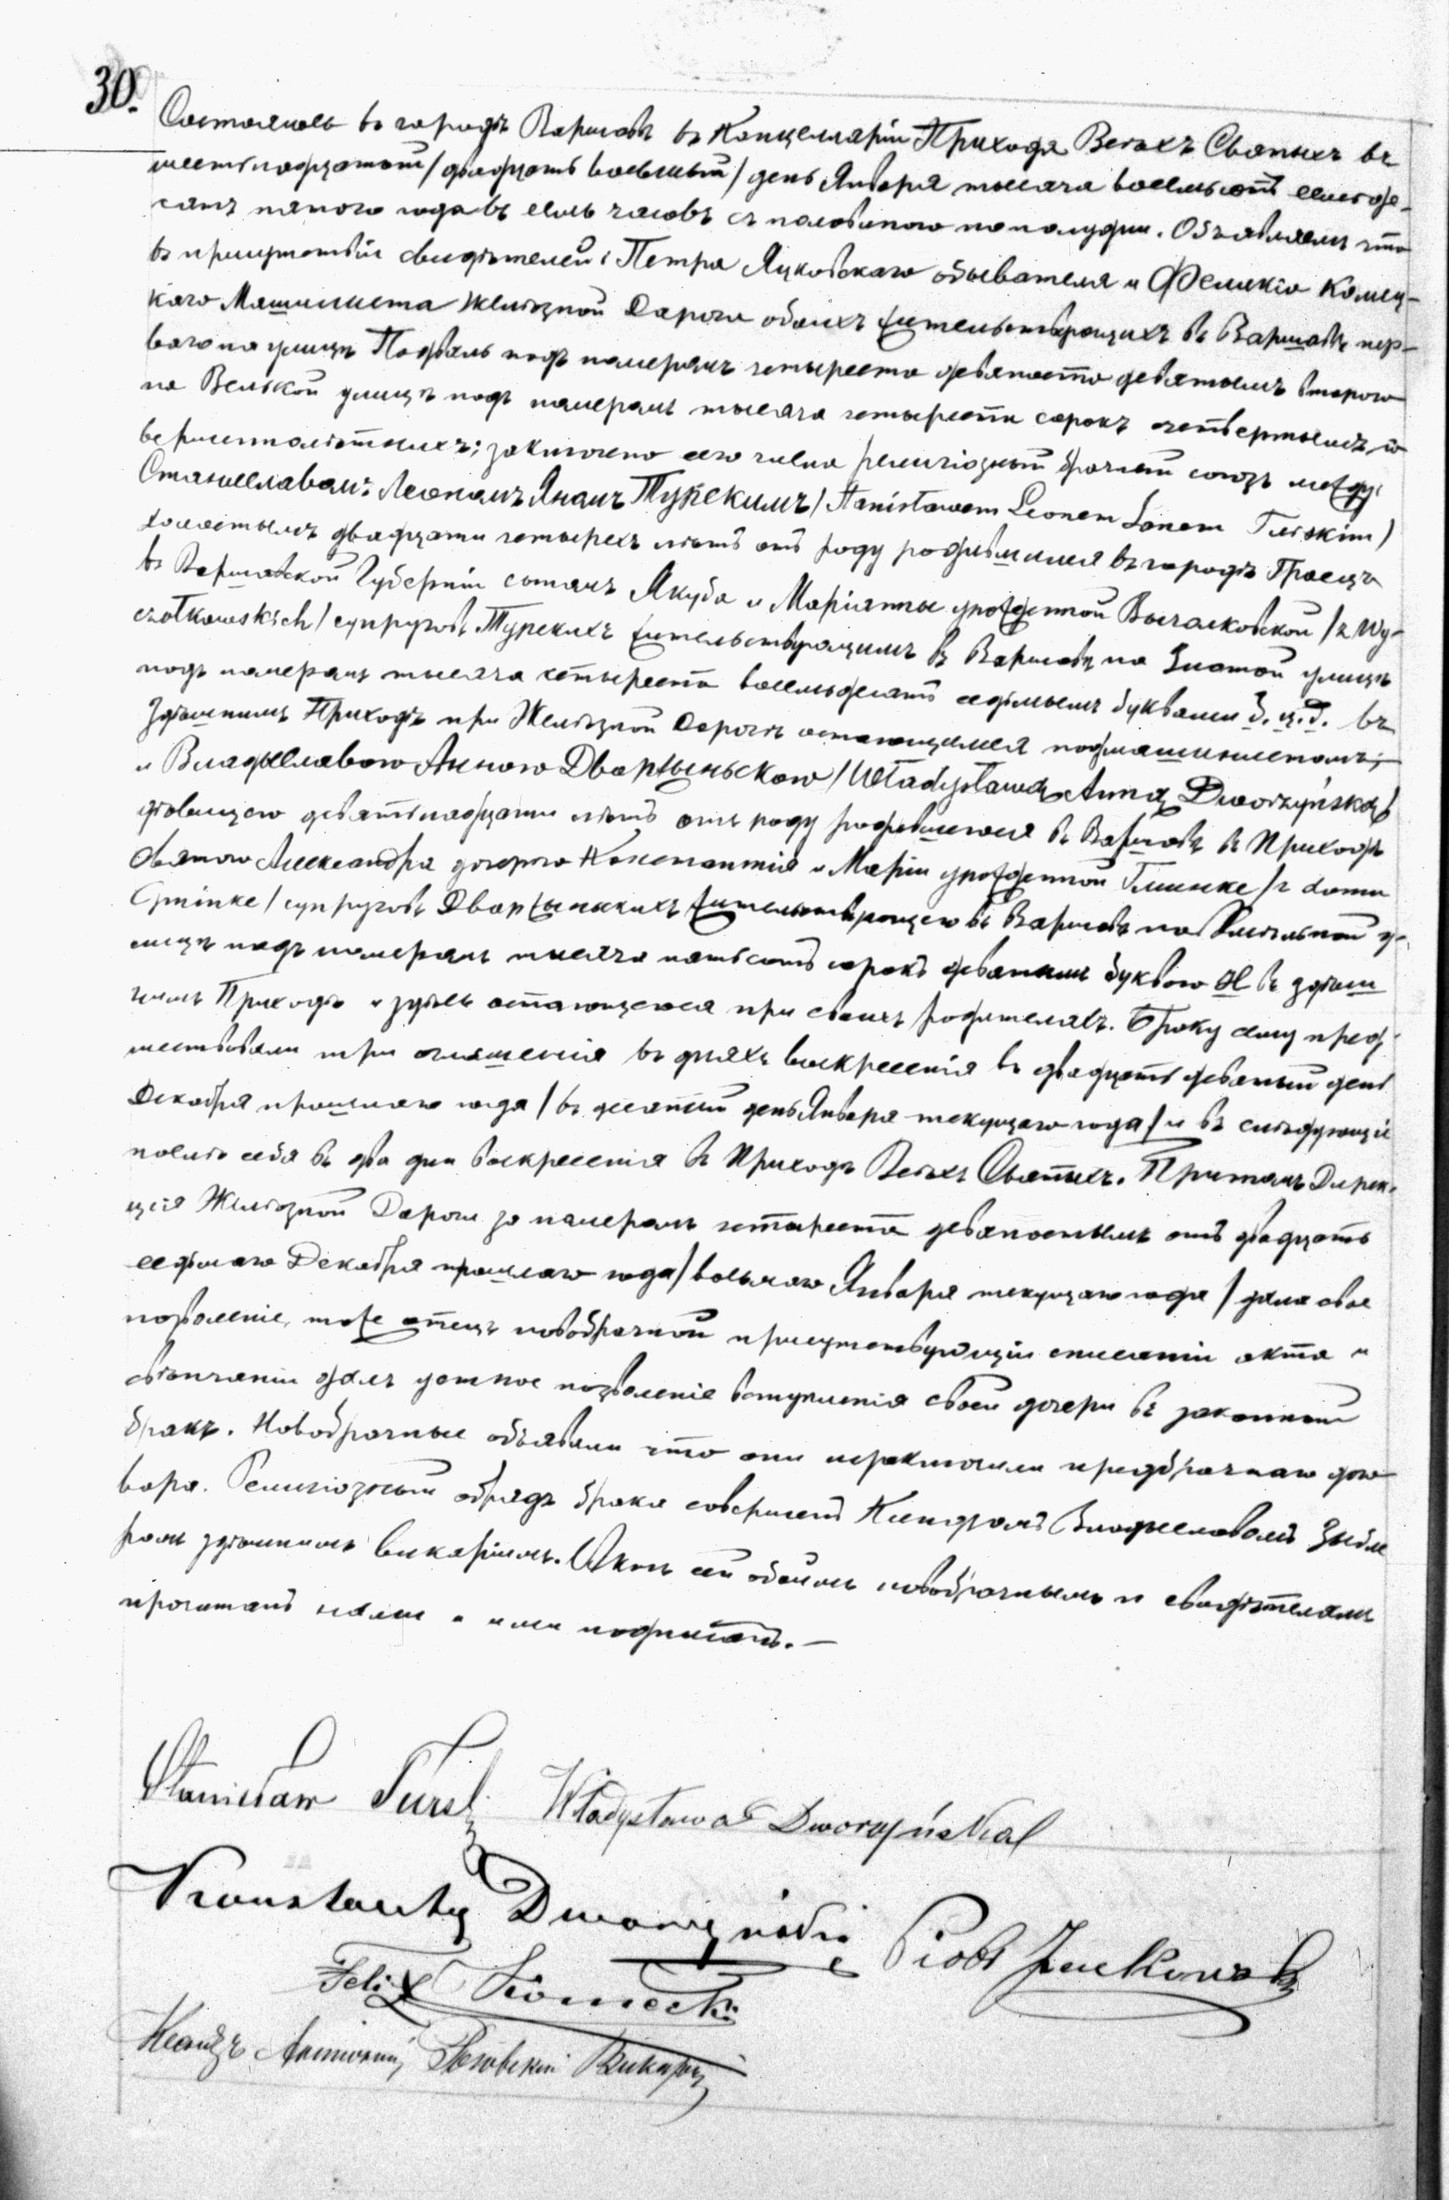 30.
Состоялось въ городѣ Варшавѣ въ Канцелляріи Прихода Всѣхъ Святыхъ въ
шестнадцатый / двадцать восьмый / день Января тысяча восемьсотъ семьде-
сятъ пятого года въ семь часовъ съ половиною пополудни. Объявляемъ что
въ присутствіи свидѣтелей: Петра Яцковскаго обывателя и Феликса Комец-
каго Машиниста Желѣзной Дороги обоихъ жительствующихъ въ Варшавѣ пер-
ваго на улицѣ Подваль подъ номеромъ четыреста девяносто девятымъ втораго
на Велькой улицѣ подъ номеромъ тысяча четыреста сорокъ четвертымъ, со-
вершеннолѣтнихъ; заключено сего числа религіозный брачный союзъ между:
Станиславомъ Леономъ Яномъ Турскимъ / Stanisławem Leonem Janem Turskim /
холостымъ двадцати четырехъ лѣтъ отъ роду родившимся въ городѣ Гроецъ
въ Варшавской Губерніи сыномъ Якуба и Маріянны урожденной Вычалковской / z Wy-
czółkowskich / супруговъ Турскихъ жительствующимъ въ Варшавѣ на Злотой улицѣ
подъ номеромъ тысяча четыреста восемьдесятъ седьмымъ буквами З. ц. Д. въ
здѣшнимъ Приходѣ при Желѣзной Дорогѣ остающимся подмашинистомъ;
и Владыславою Анною Дворжыньскою / Władysławą Anną Dworzyńską /
дѣвицею девятнадцати лѣтъ отъ роду родившеюся въ Варшавѣ въ Приходѣ
Святого Александра дочерью Константія и Маріи урожденной Глинке / z domu
Glinke / супруговъ Дворжыньскихъ жительствующею въ Варшавѣ на Хмѣльной у-
лицѣ подъ номеромъ тысяча пятьсотъ сорокъ девятымъ буквою Н въ здѣш-
нимъ Приходѣ и здѣсь остающеюся при своихъ родителяхъ. Браку сему пред-
шествовали три оглашенія въ дняхъ воскресенія въ двадцать девятый день
Декабря прошлаго года / въ десятый день Января текущаго года / и въ слѣдующіе
послѣ себя въ два дни воскресенія въ Приходѣ Всѣхъ Святыхъ. Притомъ Дирек-
ція Желѣзной Дороги за номеромъ четыреста девяностымъ отъ двадцать
седьмаго Декабря прошлаго года / восьмаго Января текущаго года / дала свое
позволеніе, тоже отецъ новобрачной присутствующій списаніи акта и
вѣнчаніи далъ устное позволеніе вступленія своей дочери въ законный
бракъ. Новобрачные объявили что они незаключили предбрачнаго дого-
вора. Религіозный обрядъ брака совершенъ Ксендзомъ Владыславомъ
ромъ здѣшнимъ викаріемъ. Актъ сей обоимъ новобрачнымъ и свидѣтелямъ
прочитанъ нами и ими подписанъ. —
Stanisław Turski Władysława Dworzyńska
Konstanty Dworzyński Piotr Jackowski
Felix Komecki
Ксендзъ Антоній Викарій